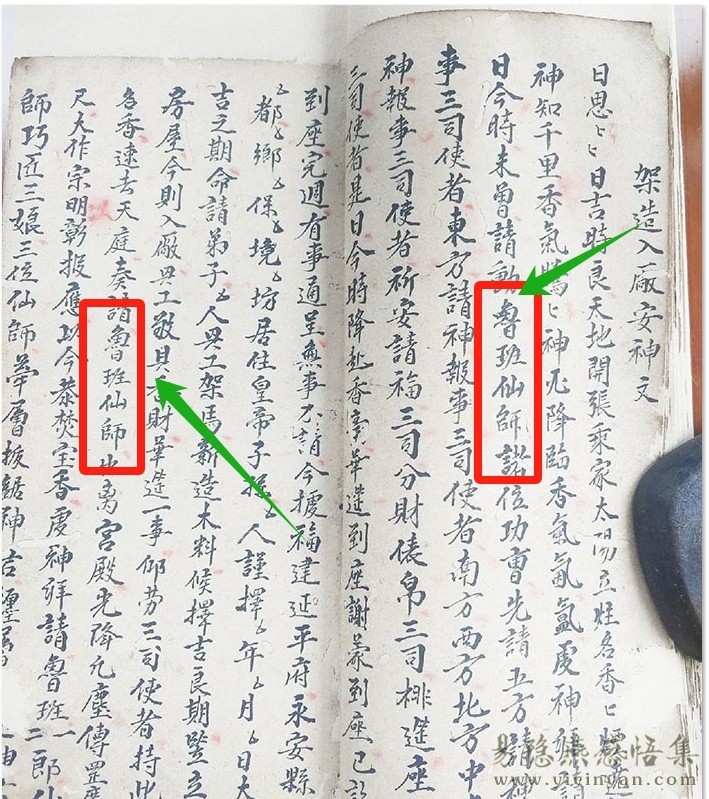 架造入廠安神文
日思〻日吉時良天地開張乘家太陽立炷名香〻煙
神知千里香氣騰〻神必降臨香氣氤氳虔神
日今時未曾請動魯班仙師諸位功曹先請五方請
事三司使者東方請神報事三司使者南方西方北方中
神報事三司使者祈安請福三司分財俵帛三司排筵座
三司使者是日今時降赴香筵華筵到座謝蒙到座已
到座完週有事通呈無事不請今據福建延平府永安縣
〻都〻鄉〻保〻境〻坊居住皇帝子孫〻人謹擇〻年〻月〻日大
吉之期命請弟子〻人興工架馬新造木料候擇吉良期豎立
房屋今則入廠興工敬具香財華筵一事仰勞三司使者持此
名香遠去天庭奏請魯班仙師出离宮殿先降凡塵傳罡
尺大作宗明彰报應以今恭焚宝香虔神拜請魯班一郎仙
師巧匠三娘三位仙師
易隐杂感悟集
www.yiyinyan.com